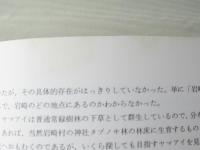 たが、その具体的存在がはっきりしていなかった。単に「岩崎
で、岩崎のどの地点にあるのかわからなかった。
ヤマアイは普通常緑樹林の下草として群生しているので、分
あれば、当然岩崎村の神社タブノキ林の林床に生育するもの
へおもむくのであるが、いくら探しても目指すヤマアイは見